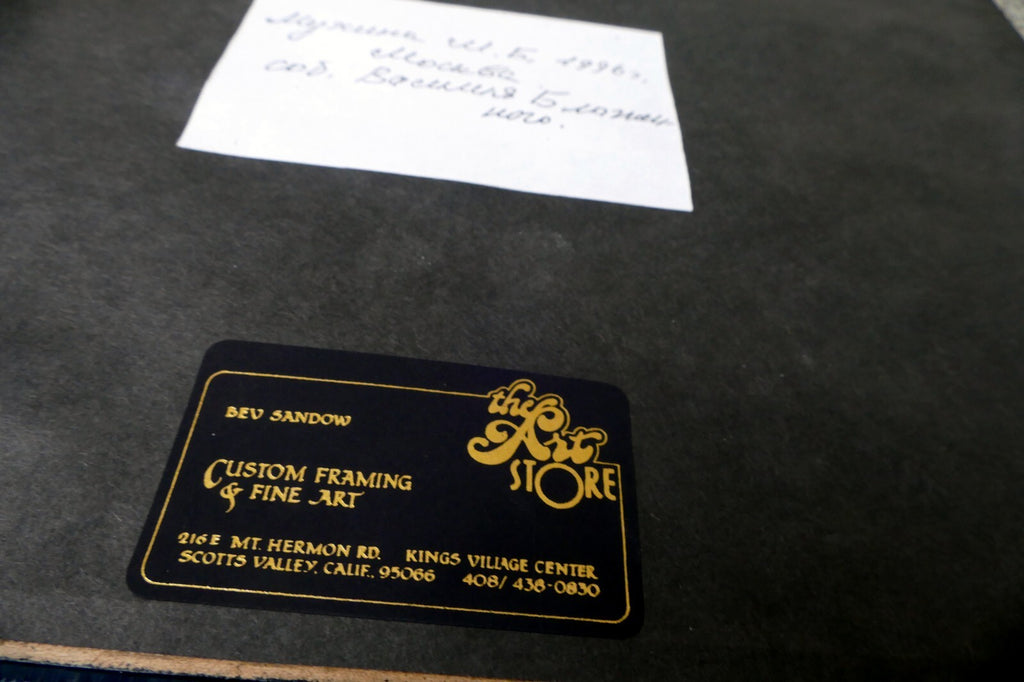 Мухина Ш.Б. 1996г.
Москва
соб. Василия Блажен-
ного.
BEV SANDOW
the Art STORE
CUSTOM FRAMING
& FINE ART
216 E MT. HERMON RD. KINGS VILLAGE CENTER
SCOTTS VALLEY, CALIF., 95066 408/ 438-0830